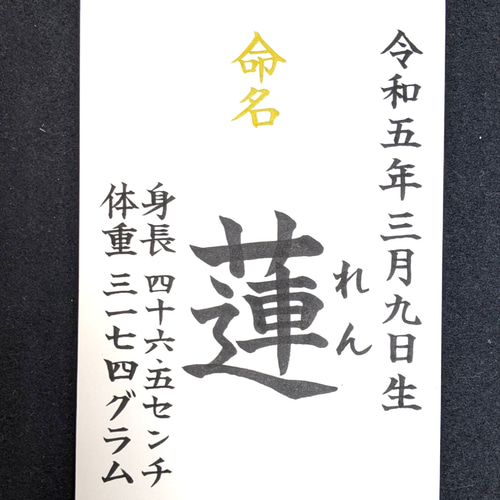 令和五年三月九日生
命名
蓮
れん
身長 四十六・五センチ
体重 三一七四グラム